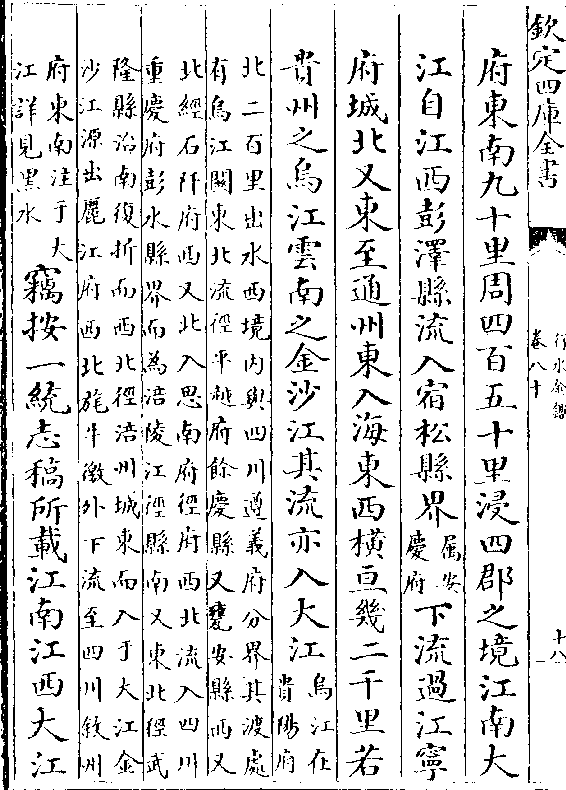 欽定四庫全書
行水金鑑
卷八十
十八
府東南九十里周四百五十里浸四郡之境江南大
江自江西彭澤縣流入宿松縣界属安慶府下流過江寧
府城北又東至通州東入海東西橫亘幾二千里若
貴州之烏江雲南之金沙江其流亦入大江烏江在貴陽府
北二百里出水西境内與四川遵義府分界其渡處
有烏江關東北流徑平越府餘慶縣又甕安縣西又
北經石阡府西又北入思南府徑府西北流入四川
重慶府彭水縣界而為涪陵江徑縣南又東北徑武
隆縣治南復折而西北徑涪州城東而入于大江金
沙江源出麗江府西北旄牛徼外下流至四川敘州
府東南注于大江詳見黒水竊按一統志稿所載江南江西大江